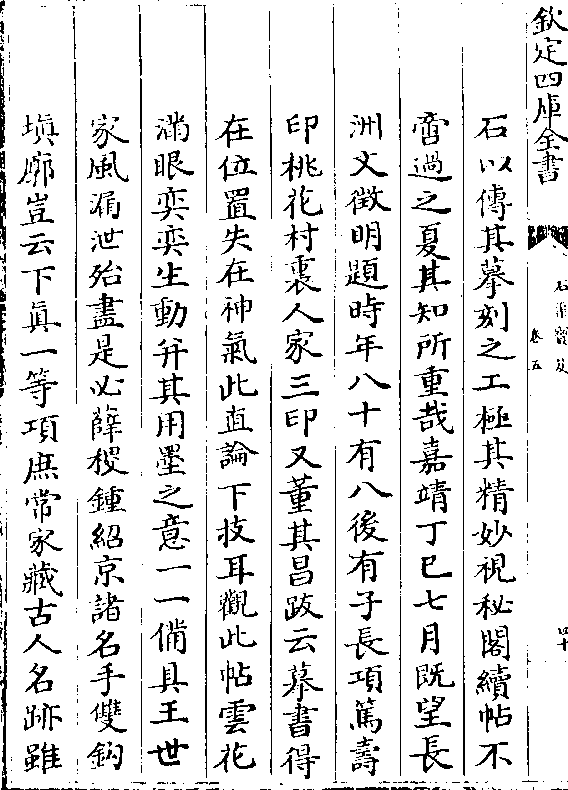 欽定四庫全書
石渠寳笈
卷五
四十
石以傳其摹刻之工極其精妙視秘閣續帖不
啻過之夏其知所重哉嘉靖丁巳七月既望長
洲文徵明題時年八十有八後有子長項篤壽
印桃花村裏人家三印又董其昌跋云摹書得
在位置失在神氣此直論下技耳觀此帖雲花
滿眼奕奕生動并其用墨之意一一備具王世
家風漏泄殆盡是必薛稷鍾紹京諸名手雙鈎
填廓豈云下真一等項庶常家藏古人名跡雖